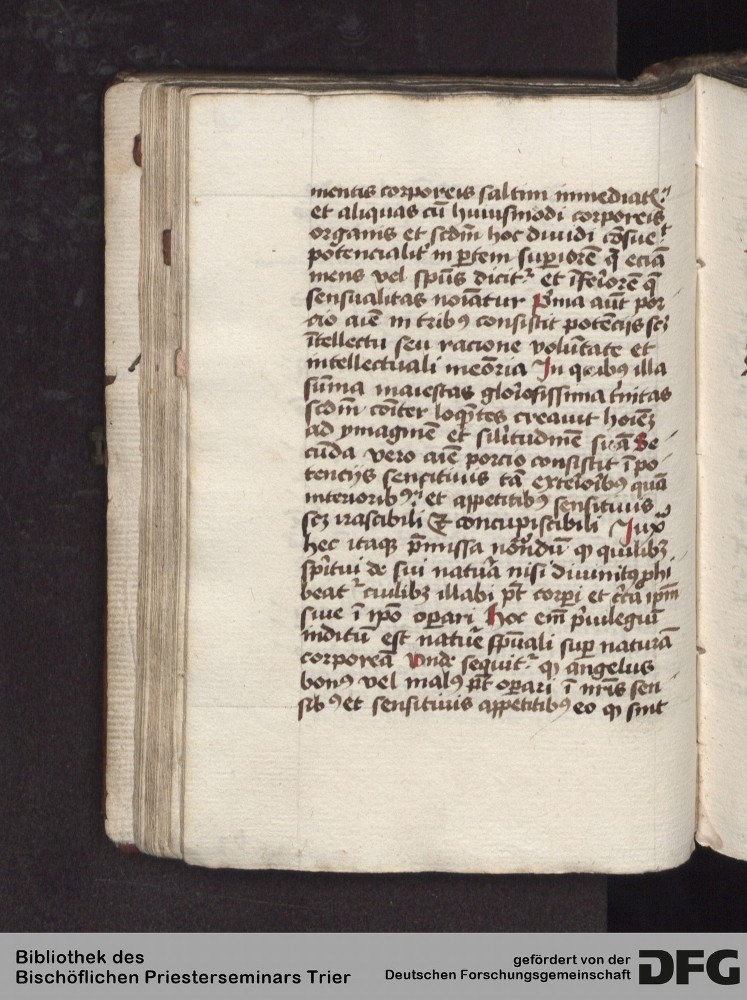 mentis corporeis saltim inmediate
et aliquas cū huiusmodi corporeis
organis et scdm̄ hoc diuidi cōsue
potencialit̾ in ꝑtem superiorē q̄ eciā
mens vel spūs dicit᷑ et īferiorē q̄
sensualitas noīatur Prima aūt por
cio aīe in tribꝯ consistit potēciis scꝫ
ītellectu seu racione volūtate et
intellectuali meōria In quibꝯ illa
sūma maiestas gloriosissima trinitas
scdm̄ cōiter loquētes creauit hoīeꝫ
ad ymaginē et silitudinē suā Se
cūda vero aīe porcio consistit ī po
tenciis sensitiuis tā exterioribꝯ quā
interioribꝯ et appetitibꝯ sensitiuis
scꝫ irascibili Et concupiscibili Iux
hec itaqꝫ p̄missa nōndū ꝙ quilibꝫ
spiritui de sui natura nisi diuinitꝯ phi
beat᷑ cuilibꝫ illabi pōt corpori et circa ipm̄
siue ī ipō operari Hoc em̄ priuilegiū
inditū est nature spūali super naturā
corporeā Vnde sequit᷑ ꝙ angelus
bonꝯ vel malꝯ pōt operari ī nr̄is sen
sibꝯ et sensitiuis appetitibꝯ eo ꝙ sint
Bibliothek des
Bischöflichen Priesterseminars Trier
gefördert von der
Deutschen Forschungsgemeinschaft
DFG